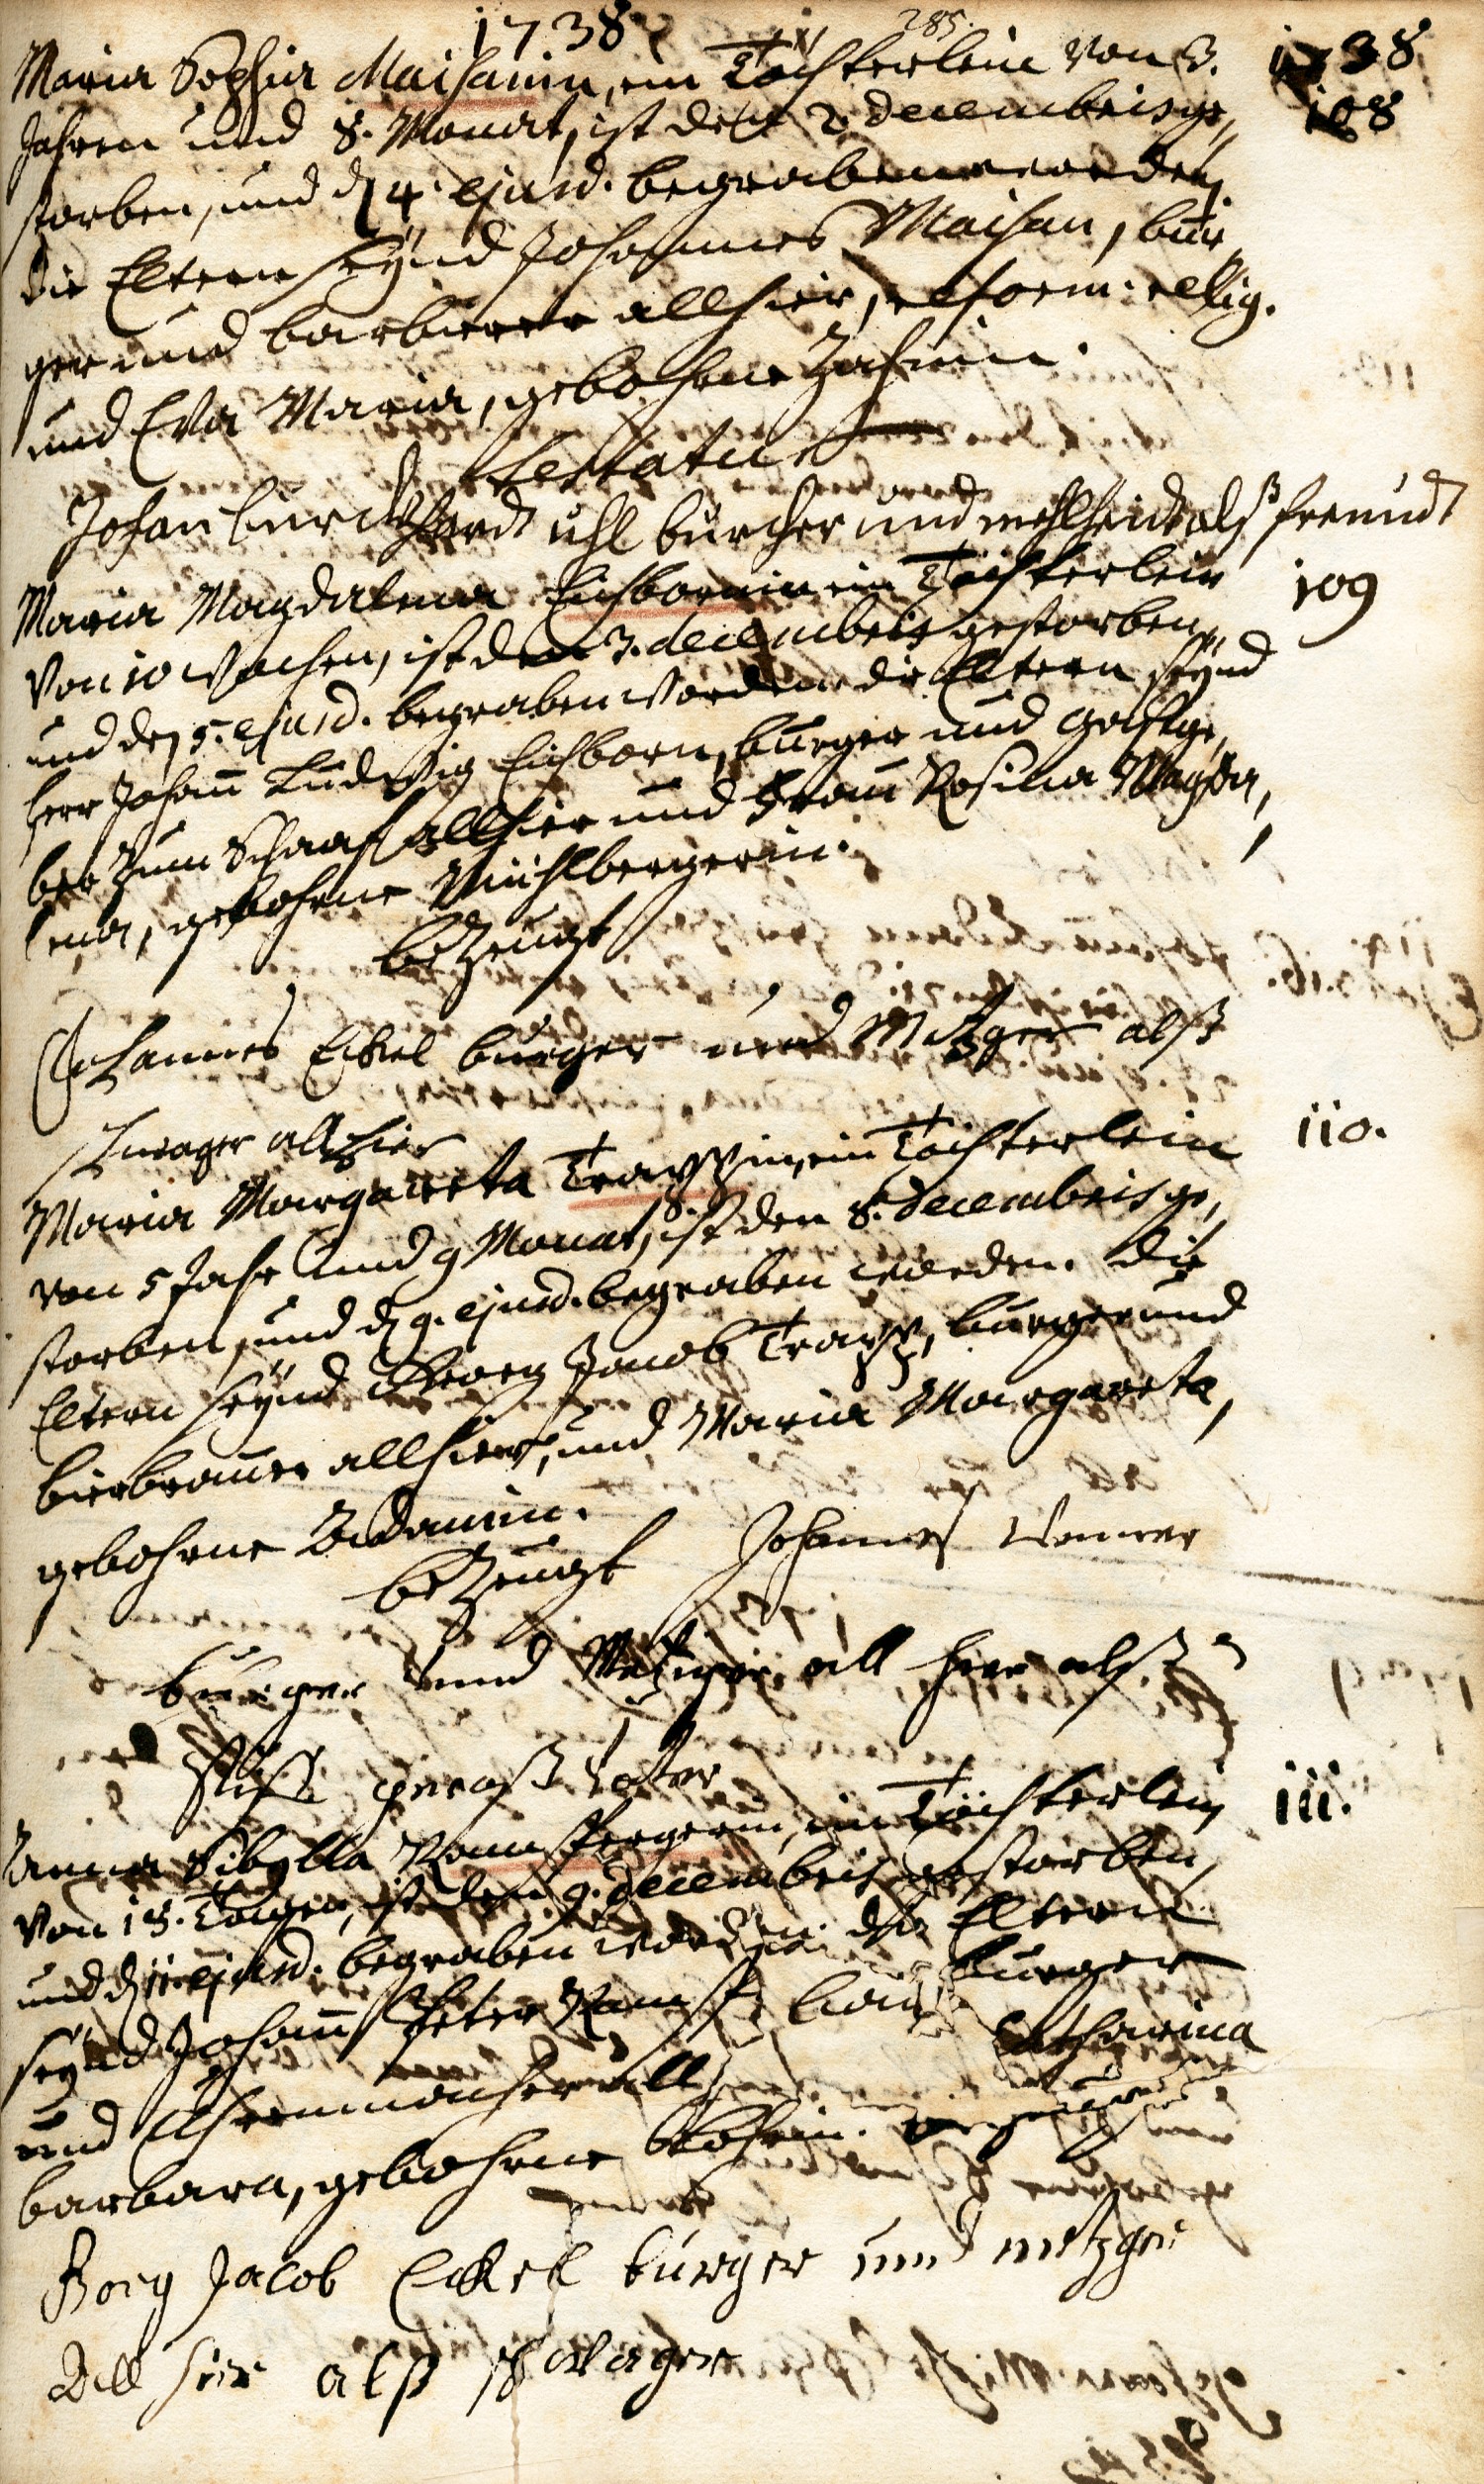 1738
285.
1738
108
Maria Sophia Maisanin, ein Töchterlein von 3.
Jahren und 8. Monat, ist den 2. decembris ge,
storben, und dn 4. ejusd. begraben worden,
die Eltern seÿnd Johannes Maisan, bur
ger und barbierer allhier, reform. rellig.
und Eva Maria, gebohrne
testatur
Johan burckhardt uhl burcher und als freundt
109
Maria Magdalena Eichbornin ein Töchterlein
von 10 Wochen, ist den 3. decembris gestorben,
und den 5. ejusd. begraben worden die Eltern seÿnd
Herr Johann Ludwig Eichborn, burger und gastge,
ber zum Schaaf allhier und Frau Rosina Magda,
lena, gebohrne Mühlbergerin.
bezeugt
Johannes Eckel burger und Metzger alß
schwager allhier
110.
Maria Margareta Trappin, ein Töchterlein
von 5 Jahr und 9 Monat, ist den 8. decembris ge,
storben, und dn 9. ejusd. begraben worden. die
Eltern seÿnd Georg Jacob Trapp, burger und
bierbrauer allhier, und Maria Margareta,
gebohrne Adamin.
bezeugt Johannes
burger unnd Metziger all hier alß
stiff groß Vatter
111.
Anna Sibylla Ramspergerin, ein Töchterlein
von 18. Tagen, ist den 9. decembris gestorben,
und dn 11. ejusd. begraben worden. die Eltern
seÿnd Johann Peter burger
und Uhrenmacher all Catharina
barbara, gebohrne
Borg Jacob Eckel burger und metzger
All hier alß schwager